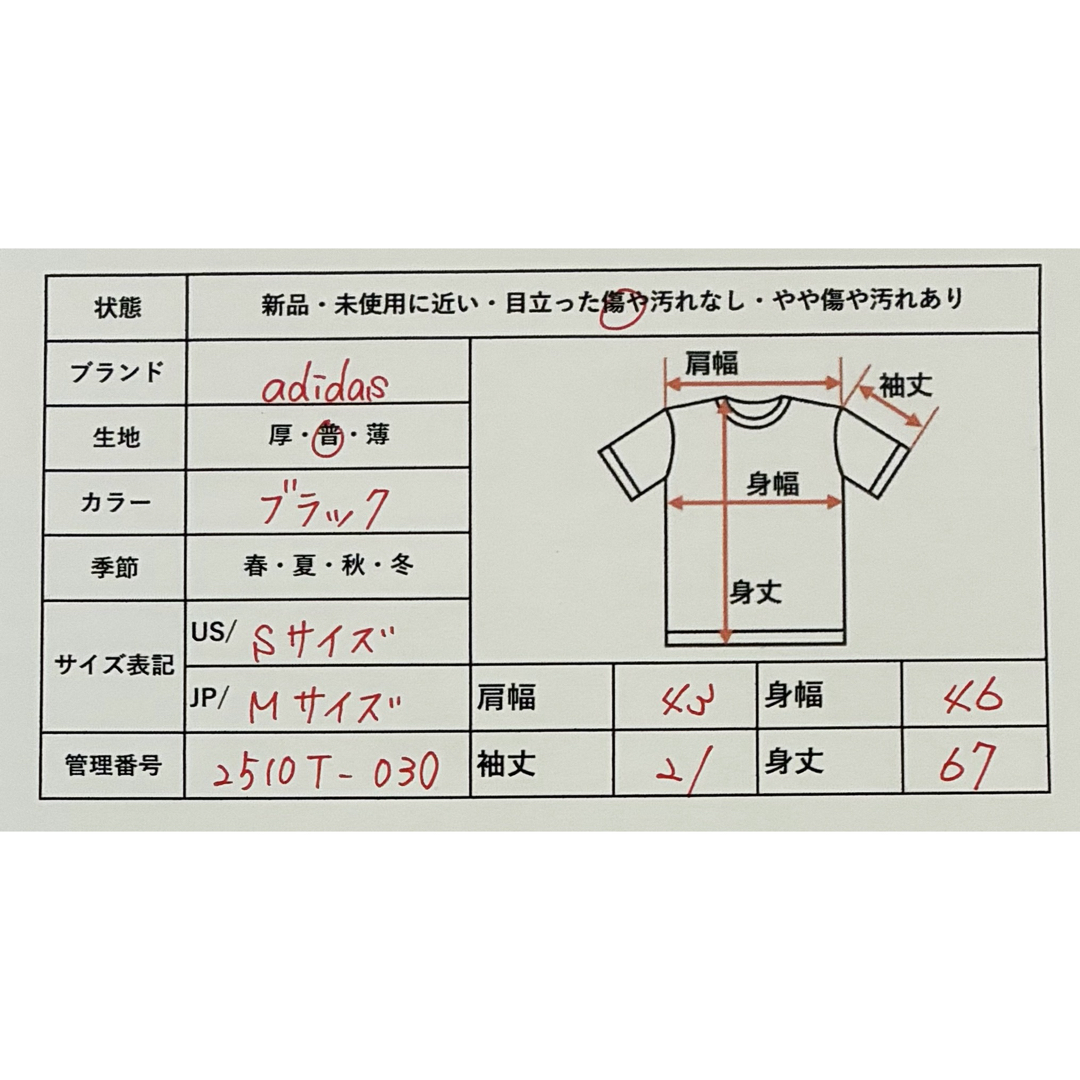 状態 新品・未使用に近い・目立った傷や汚れなし・やや傷や汚れあり
ブランド adidas
生地 厚・普・薄
カラー ブラック
季節 春・夏・秋・冬
サイズ表記 US/ Sサイズ
JP/ Mサイズ
管理番号 2510T-030
肩幅
袖丈
身幅
身丈
肩幅 43 身幅 46
袖丈 21 身丈 67